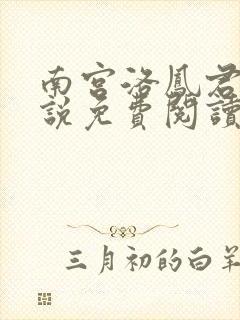 南宮洛鳳君
說免費閱讀
三月初的白羊